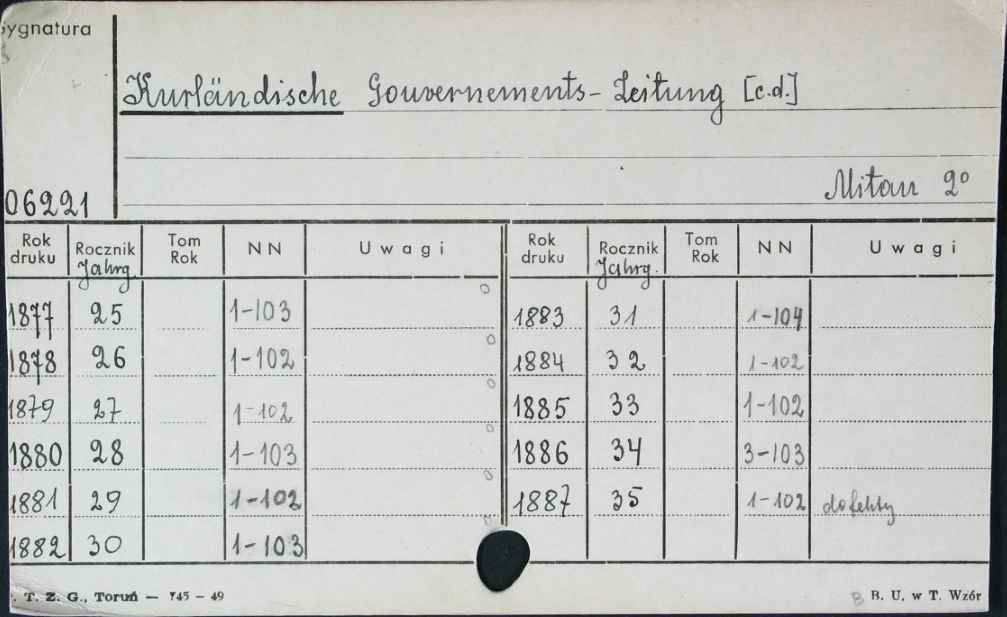 Sygnatura
Kurländische Gouvernements-Zeitung [c.d.]
Mitau 2°
06221
Rok druku Rocznik Jahrg. Tom Rok NN Uwagi Rok druku Rocznik Jahrg. Tom Rok NN Uwagi
1877 25 1-103 1883 31 1-104
1878 26 1-102 1884 32 1-102
1879 27 1-102 1885 33 1-102
1880 28 1-103 1886 34 3-103
1881 29 1-102 1887 35 1-102 defekty
1882 30 1-103
. T. Z. G., Toruń — 745 - 49 B B. U. w T. Wzór